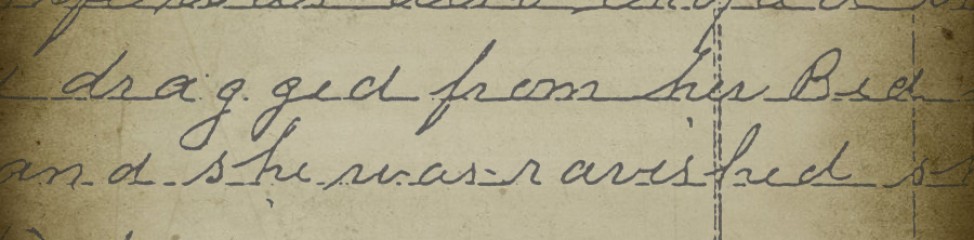 dragged from her Bed
and she was ravished